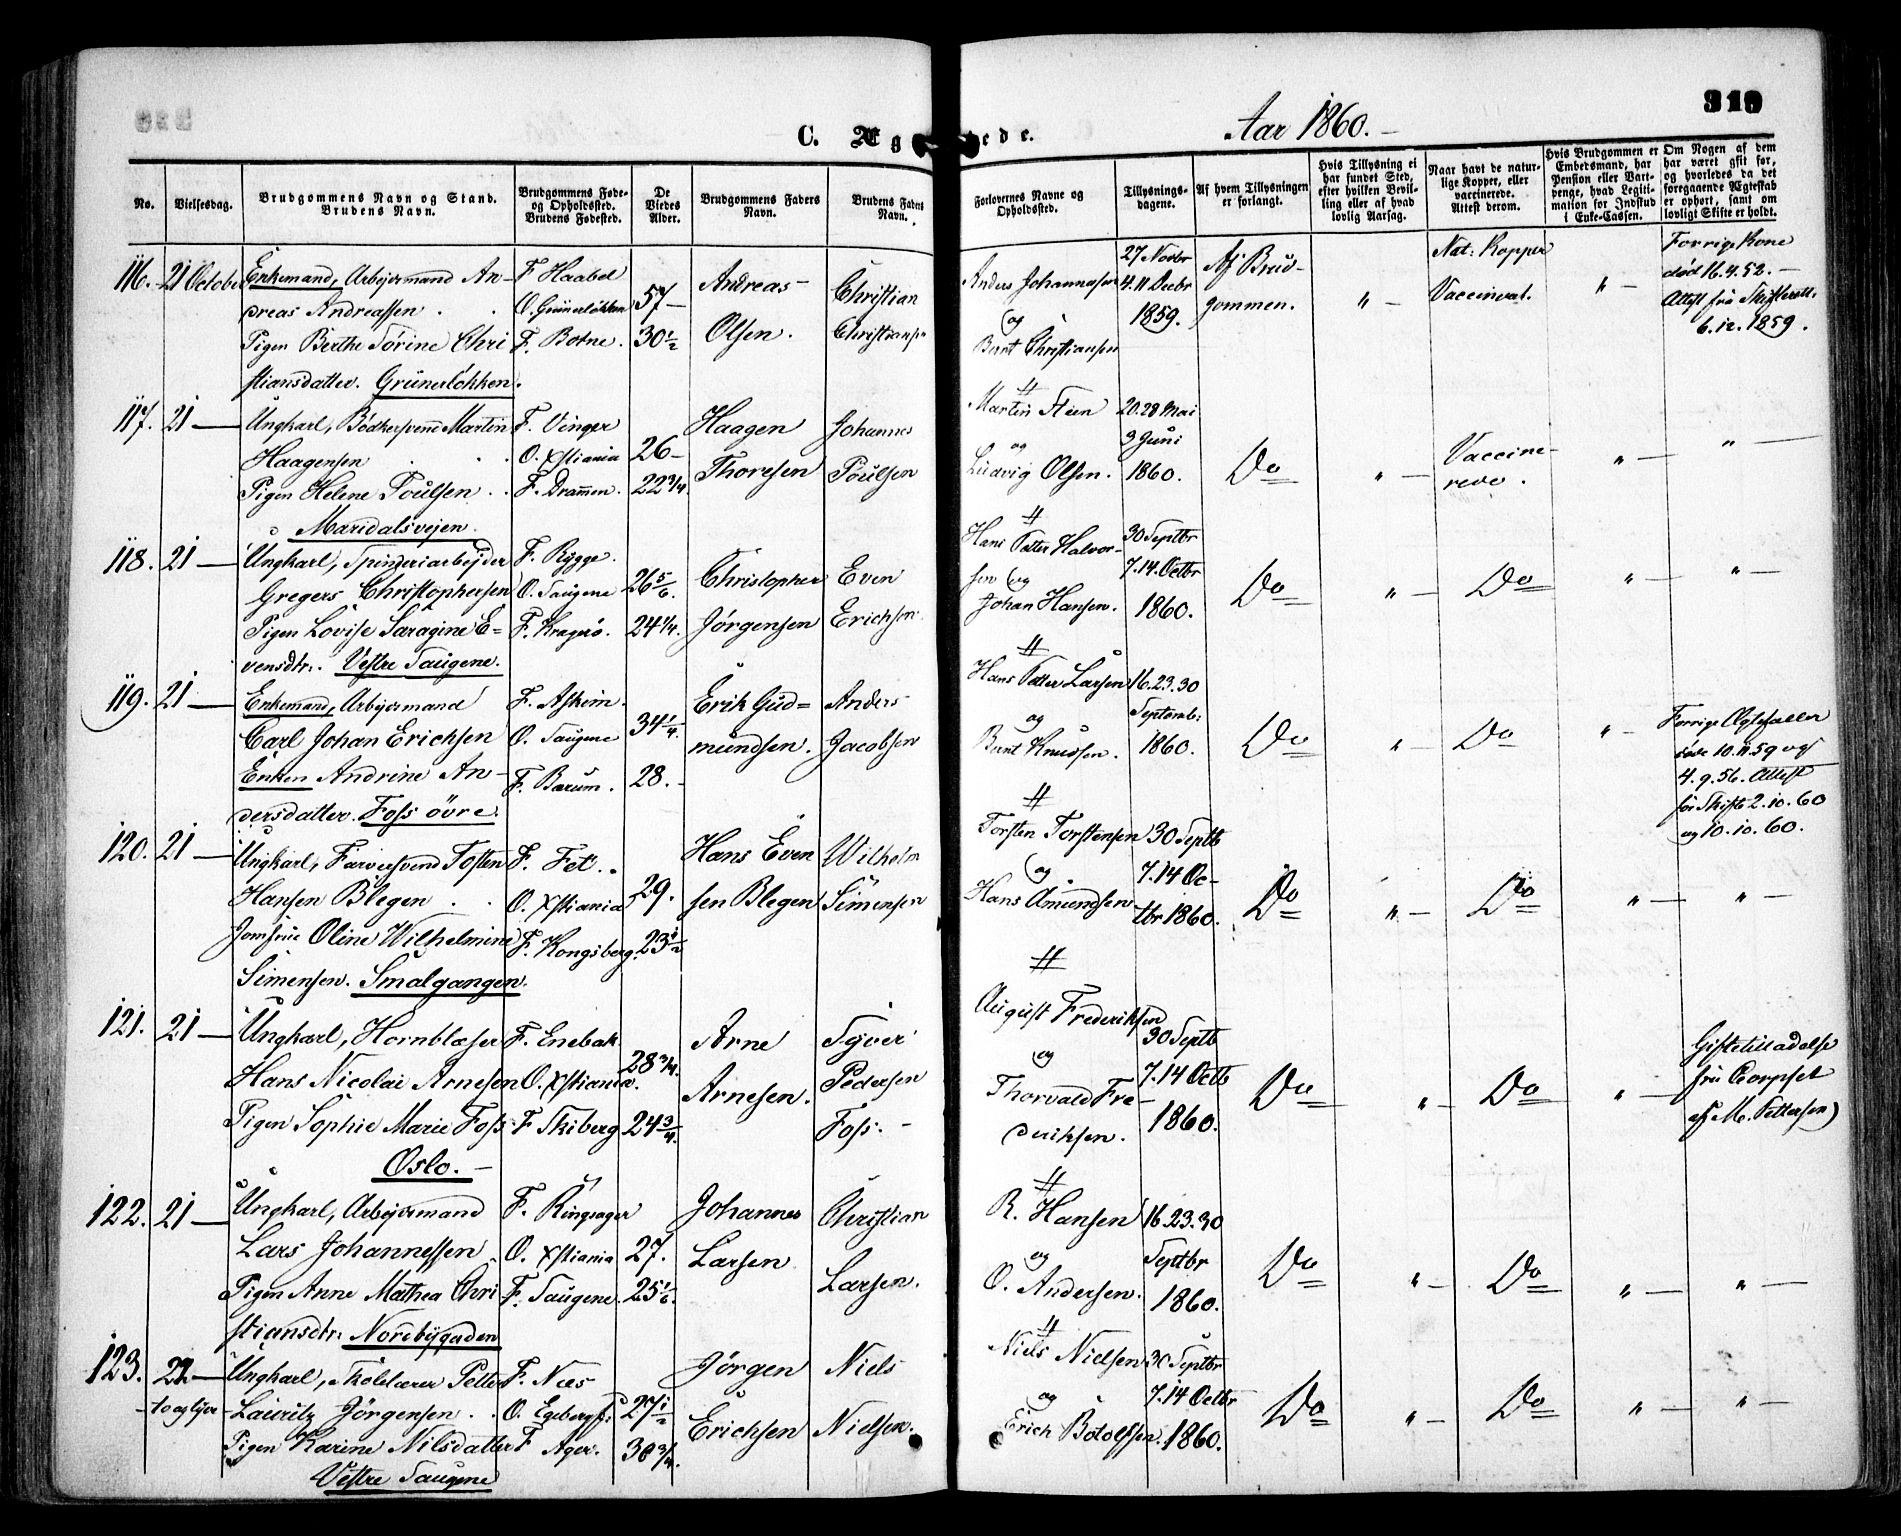 319
C. Ægteviede.
Aar 1860.
No.
Vielsesdag.
Brudgommens Navn og Stand.
Brudens Navn.
Brudgommens Føde-
og Opholdssted.
Brudens Fødested.
De
Viedes
Alder.
Brudgommens Faders
Navn.
Brudens Faders
Navn.
Forlovernes Navne og
Opholdssted.
Tillysnings-
dagene.
Af hvem Tillysningen
er forlangt.
Hvis Tillysning ei
har fundet Sted,
efter hvilken Bevil-
ling eller af hvad
lovlig Aarsag.
Naar havt de natur-
lige Kopper, eller
vaccinerede.
Attest derom.
Hvis Brudgommen er
Embedsmand, har
Pension eller Vart-
penge, hvad Legiti-
mation for Indskud
i Enke-Cassen.
Om Nogen af dem
har været gift før,
og hvorledes da det
foregaaende Ægteskab
er ophørt, samt om
lovligt Skifte er holdt.
116. 21 October
Enkemand, Arbejdsmand An-
dreas Andreassen
Pigen Berthe Sørine Chri
stiansdatter. Grünerløkken.
F. Haabel
O. Grünerløkken
F. Botne.
57
30½
Andreas
Olsen.
Christian
Christiansen
Anders Johannesen
og
Bernt Christiansen
27 Novbr
4. 11 Decbr
1859.
Af Brud-
gommen.
" -
Nat: Kopper
Vaccinerat.
" -
Forrige Kone
død 16.4.52.
Attest fra Skifterett:
6.12.1859.
117. 21
Ungkarl, Bødkersvend Martin
Haagensen
Pigen Helene Poulsen
Maridalsvejen.
F. Vinger
O. Xstiania
F. Drammen.
26
22¾.
Haagen
Thoresen
Johannes
Poulsen
Martin Steen
og
Ludvig Olsen.
20. 28 Mai
3 Juni
1860.
Do
" -
Vaccine-
rede.
" -
" -
118. 21
Ungkarl, Spinderiarbejder
Gregers Christophersen
Pigen Lovise Saragine E=
vensdtr. Vestre Saugene.
F. Rygge.
O. Saugene
F. Kragerø.
26 5/6.
24¼.
Christopher
Jørgensen
Even
Erichsen
Hans Petter Halvor-
sen og
Johan Hansen.
30 Septbr
7.14. Octbr
1860.
Do
" -
Do
" -
" -
119. 21
Enkemand, Arbejdsmand
Carl Johan Erichsen
Enken Andrine An-
dersdatter. Foss øvre.
F. Askim.
O. Saugene
F. Bærum.
34¼.
28.
Erik Gud=
mundsen.
Anders
Jacobsen
Hans Petter Larsen
og
Bernt Knudsen.
16.23.30
Septemb:
1860.
Do
" -
Do
" -
Forrige Ægtefæller
døde 10.11.59 og
4.9.56. Attest
for Skifte 2.10.60
og 10.10.60.
120. 21
Ungkarl, Farversvend Tosten
Hansen Blegen
Jomfrue Oline Wilhelmine
Simensen. Smalgangen.
F. Fet.
O. Xstiania
F. Kongsberg.
29.
23½
Hans Even
sen Blegen
Wilhelm
Simensen
Torsten Torstensen
og
Hans Amundsen
30 Septb
7.14 Oc-
tbr 1860.
Do
" -
Do
" -
" -
121. 21
Ungkarl, Hornblæser
Hans Nicolai Arnesen
Pigen Sophie Marie Foss
Oslo.
F. Enebak
O. Xstiania.
F Skiberg
28¾.
24¾.
Arne
Arnesen.
Syver
Pedersen
Foss.
August Frederiksen
og
Thorvald Fre-
deriksen.
30 Septb
7.14 Octb
1860.
Do
" -
Do
" -
Giftetilladelse
fra Corpset
af M. Pettersen
122. 21
Ungkarl, Arbejdsmand
Lars Johannessen
Pigen Anne Mathea Chri
stiansdtr: Nordbygaden
F. Ringsager
O. Xstiania
F. Saugene.
27.
25 1/6.
Johannes
Larsen
Christian
Larsen.
R. Hansen
og
O. Andersen.
16.23.30
Septbr
1860.
Do
" -
Do
" -
" -
123. 22.
to og tyve
Ungkarl, Skolelærer Petter
Lauritz Jørgensen
Pigen Karine Nilsdatter
Vestre Saugene
F. Næs
F Ager.
27½
30¾.
Jørgen
Erichsen
Niels
Nielsen.
Niels Nielsen
og
Erich Botolfsen.
30 Septbr
7.14 Octbr
1860.
Do
" -
Do
" -
" -